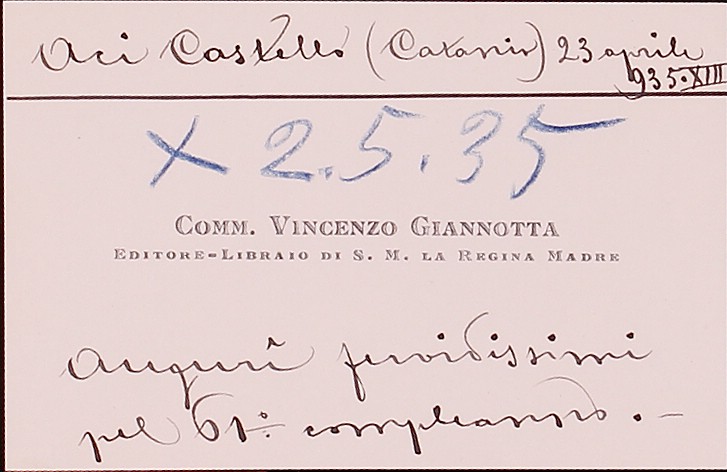 Aci Castello (Catania) 23 aprile
935·XIII
x 2.5.35
COMM. VINCENZO GIANNOTTA
EDITORE-LIBRAIO DI S. M. LA REGINA MADRE
Augurî fervidissimi
pel 61º compleanno. –